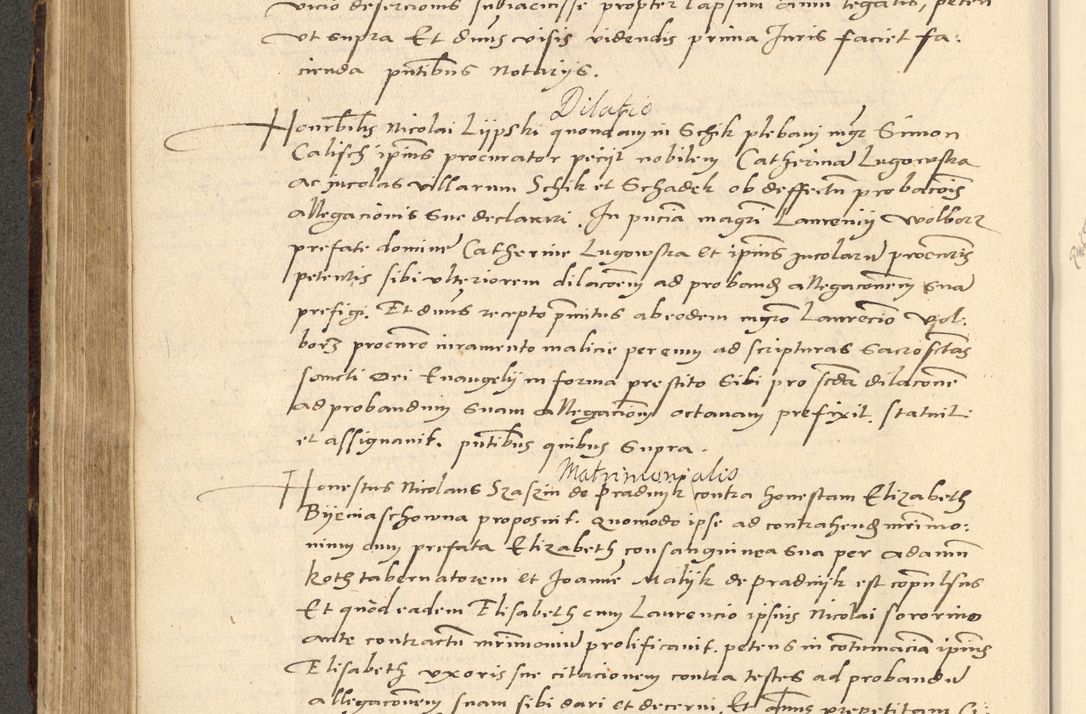 vicio desercionis subiacuisse propter lapsum anni legalis, peten
vt supra Et dnus visis videndis prima Iuris faciet fa:
cienda pntibus Notarijs.
Dilatio
Honrbilis Nicolai Lijpski quondam in Schik plebani mgr Simon
Calisch ipius procurator pecijt nobilem Catherina Lugowska
ac incolas villarum Schik et Schadek ob deffectu probacois
allegacionis sue declarari. In pncia magri Laurencij Wolborz
prefate domine Catherine Lugowska et ipius incolaru procuris
petentis sibi vlteriorem dilacoem ad proband allegaconem sua
prefigi. Et dnus recepto pmitus ab eodem mgro Laurencio Vol:
borz procuro iuramento malicie per eum ad scripturas Sacrosctas
sancti Dei Euangelij in forma prestito Sibi pro scda dilacone
ad probandum suam allegaciom octauam prefixit. statuit
et assignauit. pntibus quibus Supra.
Matrimonialis
Honestus Nicolaus Szaszin de Pradnijk contra honestam Elizabeth
Bijeciaschowna proposuit. quomodo ipse ad contrahend mrimo:
nium cum prefata Elizabeth consanguinea sua per adamu
Koth tabernatorem et Joanne Malijk de pradnijk est copulsus
Et quod eadem Elisabeth cum Laurencio ipsius Nicolai sororino
ante contractu mrimoniu prolificauit. petens in cotumacia ipius
Elisabeth vxoris sue citacionem contra testes ad probandu
allegaconem suam sibi dari et decerni. Et dnus prepetitam Ci: